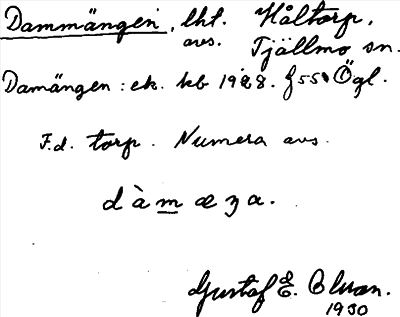 Dammängen, lht. Håltorp,
avs. Tjällmo sn.
Damängen: ek. kb 1928. § 55 Ögl.
F.d. torp. Numera avs.
dàmæza.
Gustaf E.
1930